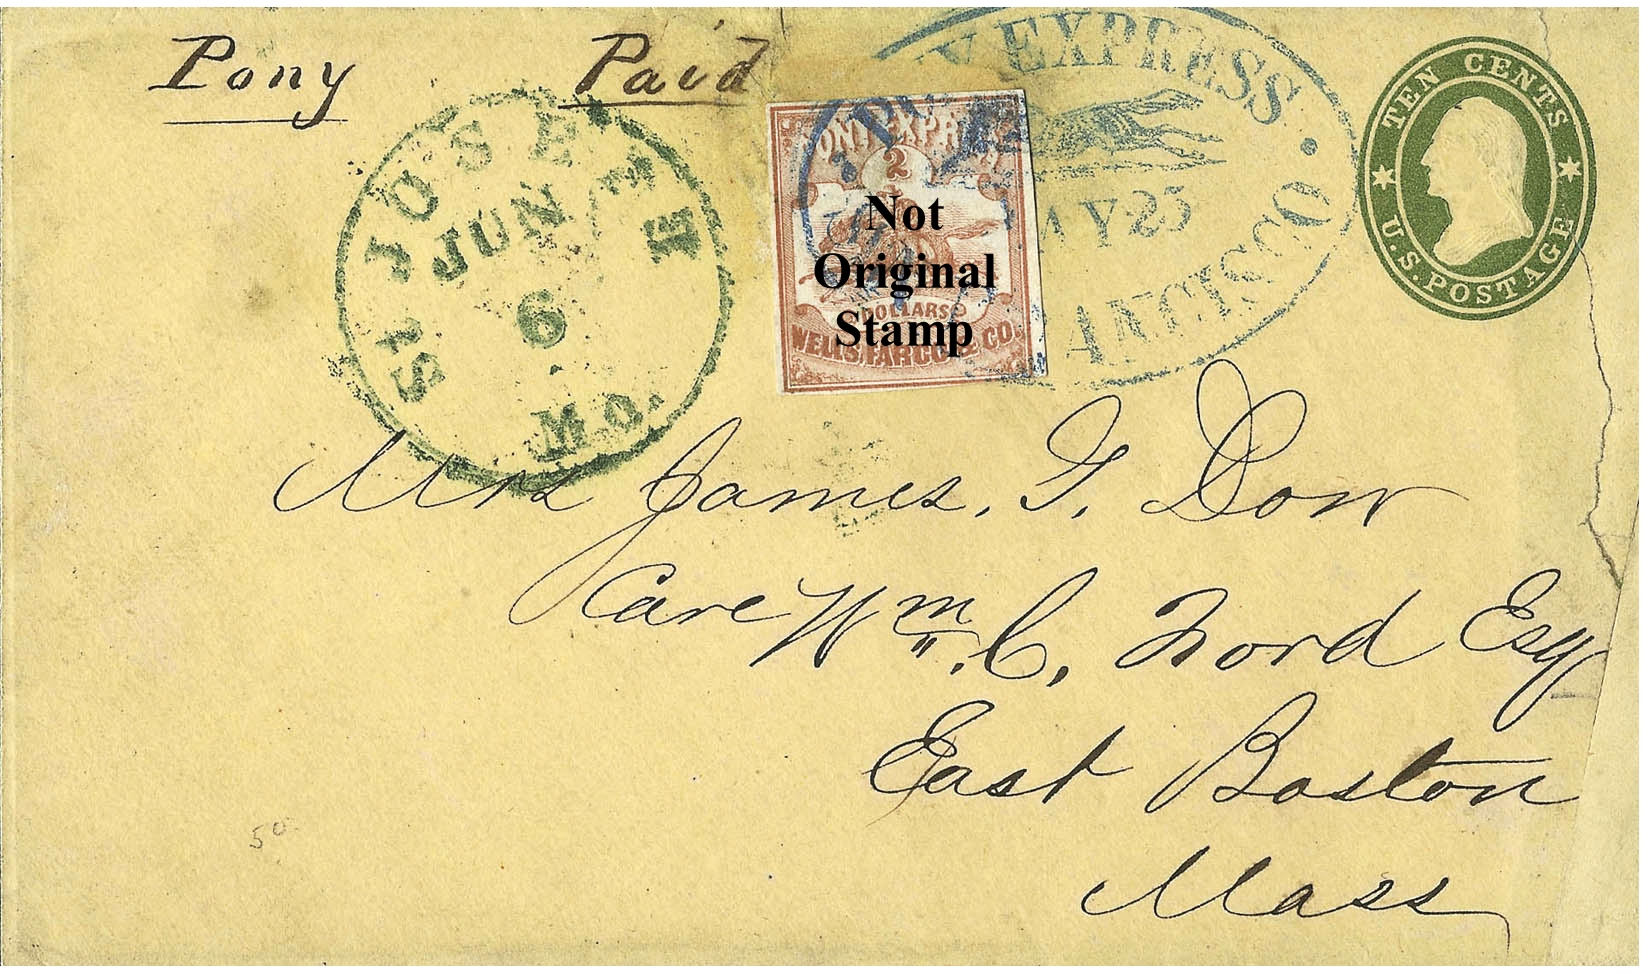 Pony Paid
PONY EXPRESS
MAY 25
FRANCISCO
TEN CENTS
U.S. POSTAGE
ST JOSEPH
JUN
6
MO.
PONY EXPRESS
2
DOLLARS
WELLS, FARGO & CO.
Not
Original
Stamp
Mrs James. T. Dow
Care Wm. C. Ford Esq
East Boston
Mass
50